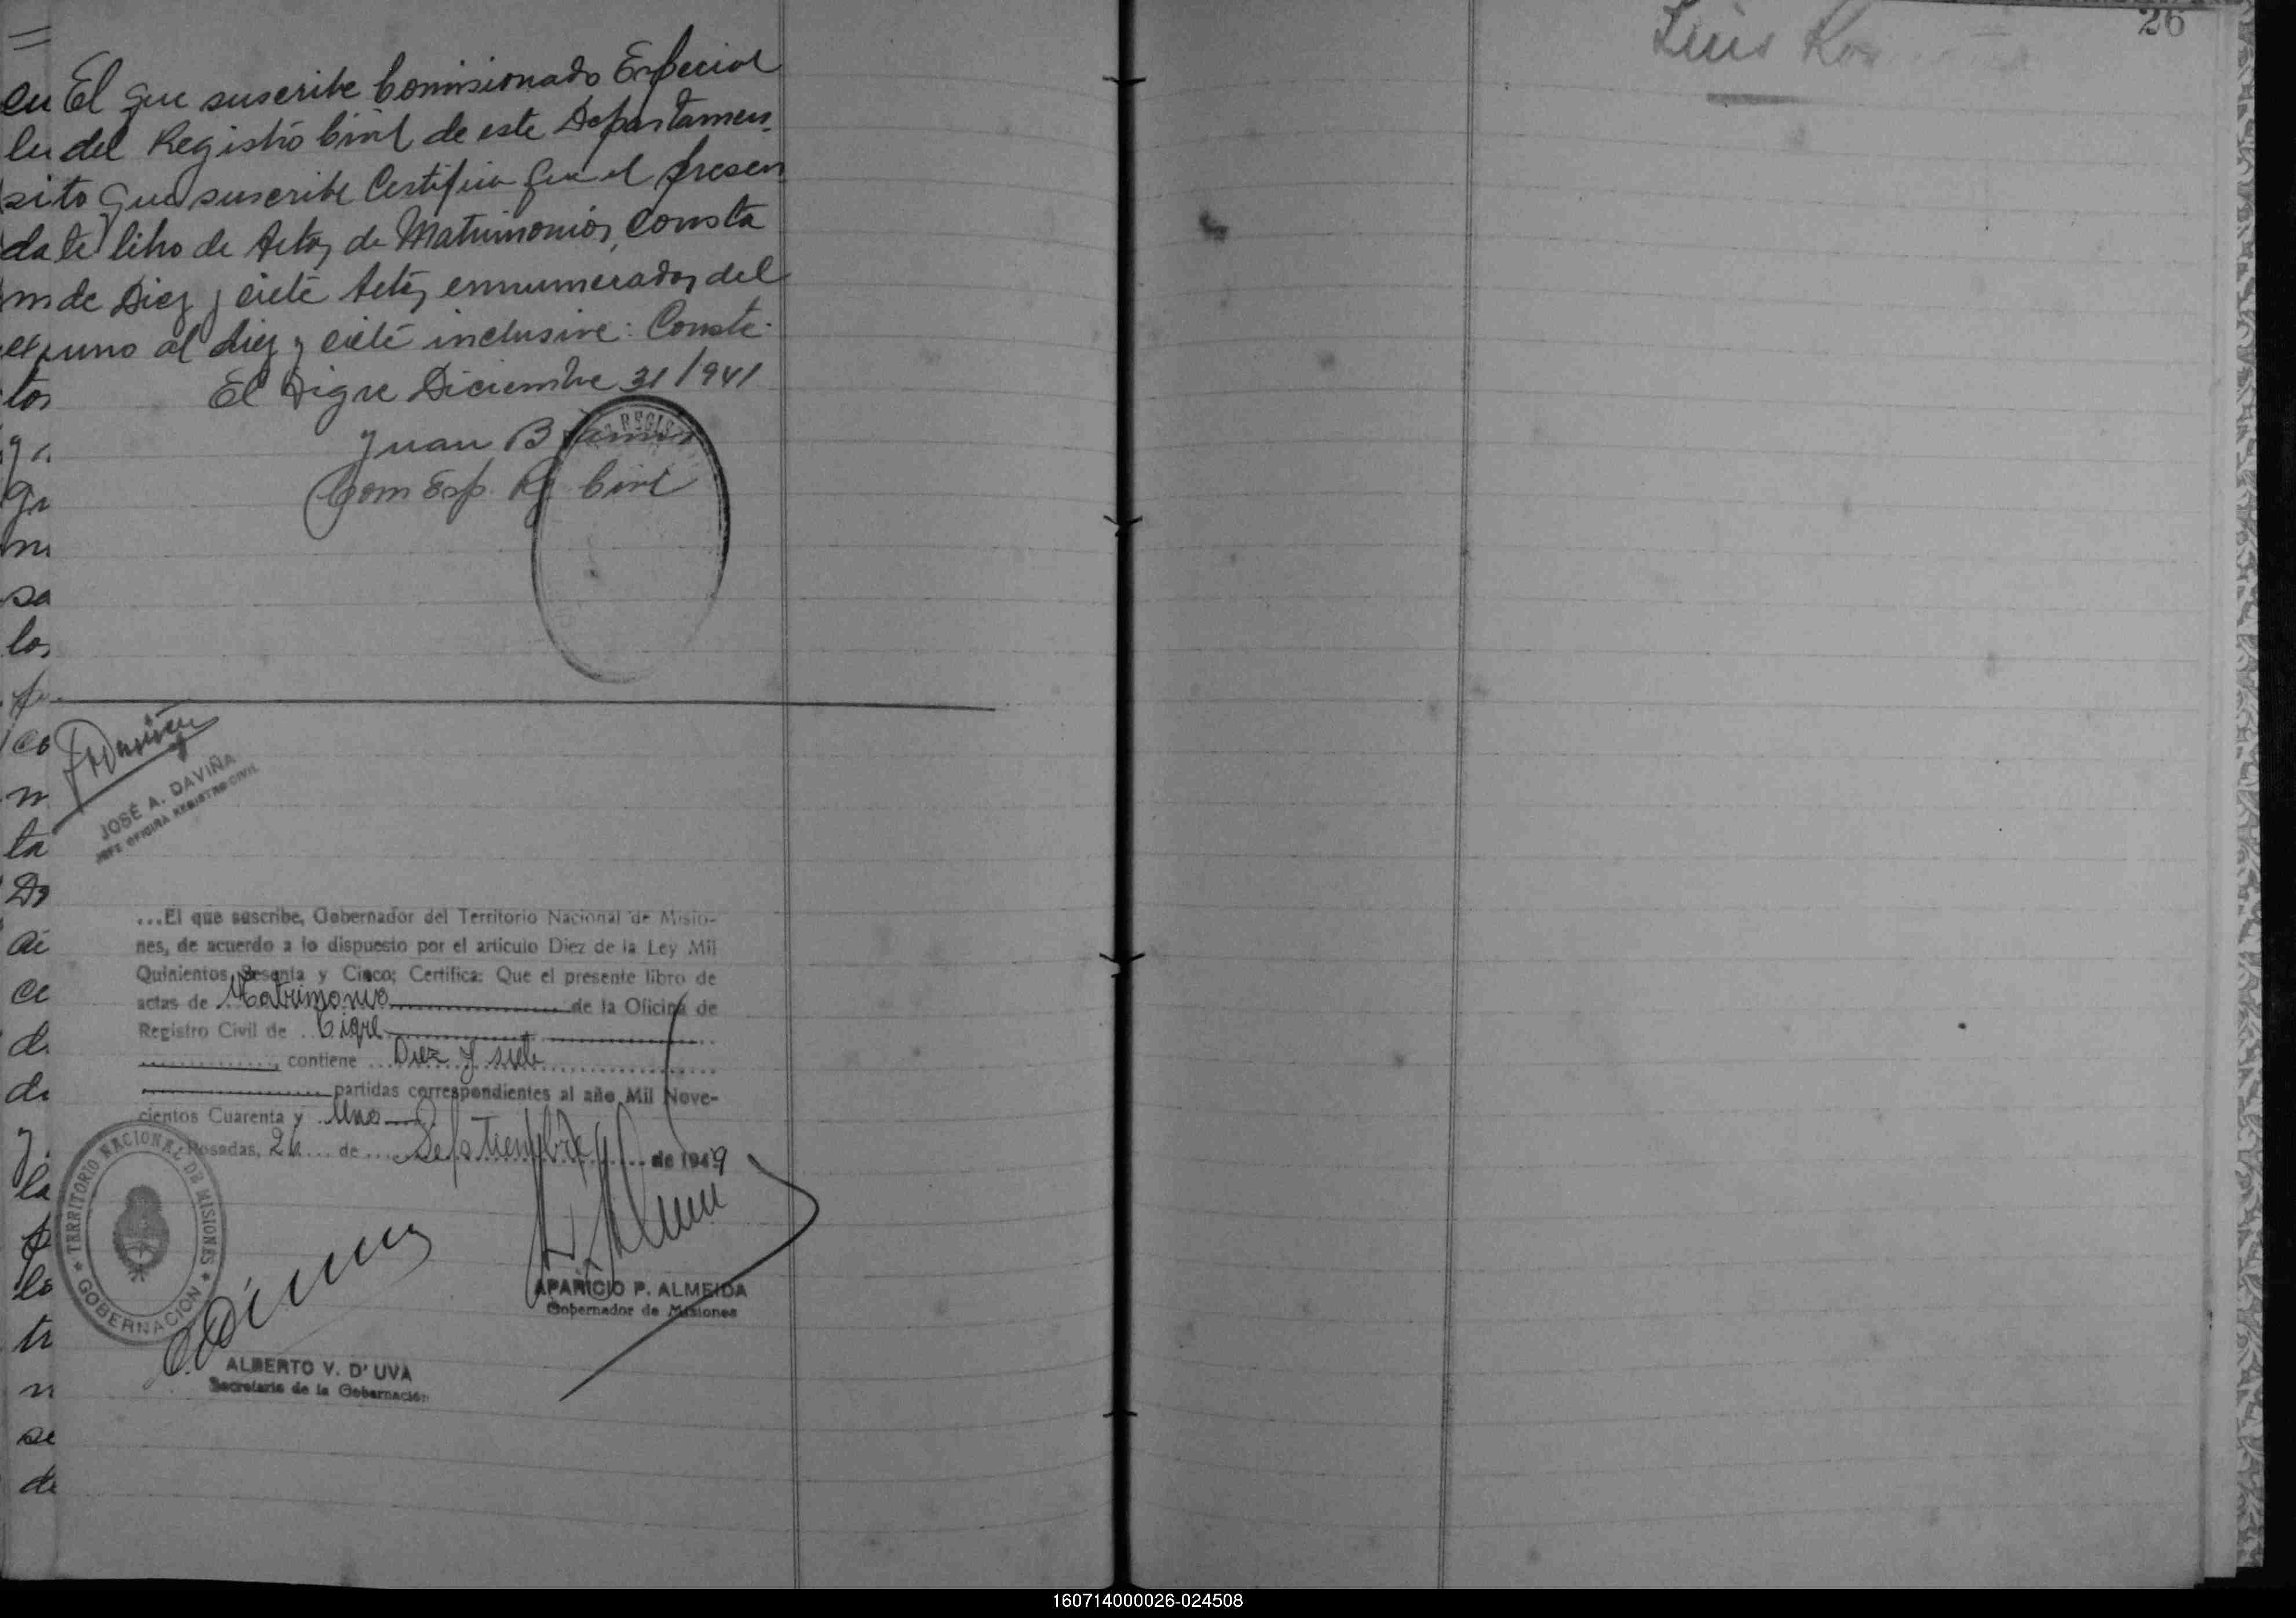 El que suscribe Comisionado Especial
del Registro Civil de este Departamen-
to que suscribe Certifica que el presen
te libro de Actas de Matrimonios, consta
de Diez y ciete Actas enumeradas del
uno al diez y ciete inclusive: Conste.
El Tigre Diciembre 31/941
Juan B
Com Esp. Rg Civil
JOSÉ A. DAVIÑA
JEFE OFICINA REGISTRO CIVIL
...El que suscribe, Gobernador del Territorio Nacional de Misio-
nes, de acuerdo a lo dispuesto por el artículo Diez de la Ley Mil
Quinientos Sesenta y Cinco; Certifica: Que el presente libro de
actas de Matrimonio de la Oficina de
Registro Civil de Tigre
contiene Diez y siete
partidas correspondientes al año Mil Nove-
cientos Cuarenta y Uno
Posadas, 26 de Septiembre de 1949
TERRITORIO NACIONAL DE MISIONES
GOBERNACION
APARICIO P. ALMEIDA
Gobernador de Misiones
ALBERTO V. D' UVA
Secretario de la Gobernación
Luis
26
160714000026-024508